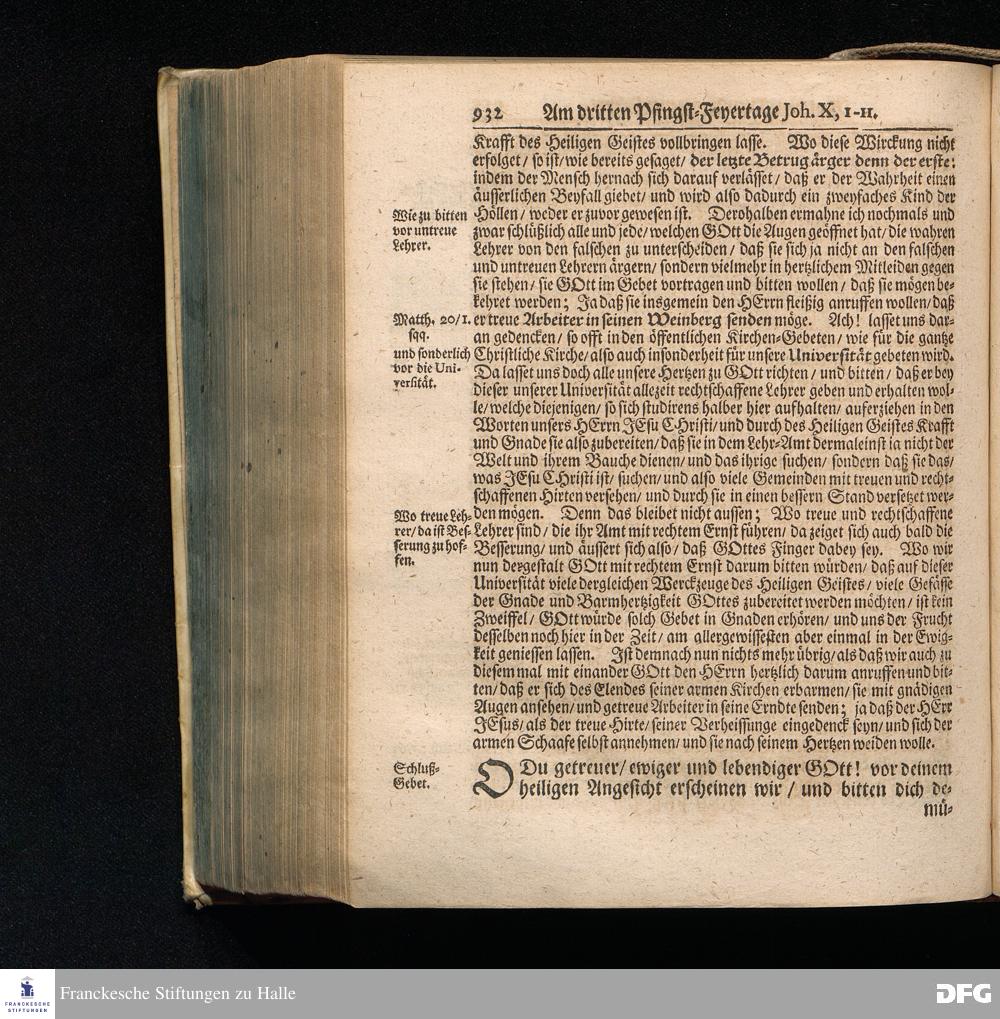 932 Am dritten Pfingst-Feyertage Joh. X, 1-11.
Krafft des Heiligen Geistes vollbringen lasse. Wo diese Wirckung nicht
erfolget/ so ist/ wie bereits gesaget/ der letzte Betrug ärger denn der erste:
indem der Mensch hernach sich darauf verlässet/ daß er der Wahrheit einen
äusserlichen Beyfall giebet/ und wird also dadurch ein zweyfaches Kind der
Wie zu bitten
vor untreue
Lehrer.
Höllen/ weder er zuvor gewesen ist. Derohalben ermahne ich nochmals und
zwar schlüßlich alle und jede/ welchen GOtt die Augen geöffnet hat/ die wahren
Lehrer von den falschen zu unterscheiden/ daß sie sich ja nicht an den falschen
und untreuen Lehrern ärgern/ sondern vielmehr in hertzlichem Mitleiden gegen
sie stehen/ sie GOtt im Gebet vortragen und bitten wollen/ daß sie mögen be-
kehret werden; Ja daß sie insgemein den HErrn fleißig anruffen wollen/ daß
Matth. 20/1.
sqq.
und sonderlich
vor die Uni-
versität.
er treue Arbeiter in seinen Weinberg senden möge. Ach! lasset uns dar-
an gedencken/ so offt in den öffentlichen Kirchen-Gebeten/ wie für die gantze
Christliche Kirche/ also auch insonderheit für unsere Universität gebeten wird.
Da lasset uns doch alle unsere Hertzen zu GOtt richten/ und bitten/ daß er bey
dieser unserer Universität allezeit rechtschaffene Lehrer geben und erhalten wol-
le/ welche diejenigen/ so sich studirens halber hier aufhalten/ auferziehen in den
Worten unsers HErrn JEsu CHristi/ und durch des Heiligen Geistes Krafft
und Gnade sie also zubereiten/ daß sie in dem Lehr-Amt dermaleinst ja nicht der
Welt und ihrem Bauche dienen/ und das ihrige suchen/ sondern daß sie das/
was JEsu CHristi ist/ suchen/ und also viele Gemeinden mit treuen und recht-
schaffenen Hirten versehen/ und durch sie in einen bessern Stand versetzet wer-
Wo treue Leh-
rer/ da ist Bes-
serung zu hof-
fen.
den mögen. Denn das bleibet nicht aussen; Wo treue und rechtschaffene
Lehrer sind/ die ihr Amt mit rechtem Ernst führen/ da zeiget sich auch bald die
Besserung/ und äussert sich also/ daß GOttes Finger dabey sey. Wo wir
nun dergestalt GOtt mit rechtem Ernst darum bitten würden/ daß auf dieser
Universität viele dergleichen Werckzeuge des Heiligen Geistes/ viele Gefässe
der Gnade und Barmhertzigkeit GOttes zubereitet werden möchten/ ist kein
Zweiffel/ GOtt würde solch Gebet in Gnaden erhören/ und uns der Frucht
desselben noch hier in der Zeit/ am allergewissesten aber einmal in der Ewig-
keit geniessen lassen. Ist demnach nun nichts mehr übrig/ als daß wir auch zu
diesem mal mit einander GOtt den HErrn hertzlich darum anruffen und bit-
ten/ daß er sich des Elendes seiner armen Kirchen erbarmen/ sie mit gnädigen
Augen ansehen/ und getreue Arbeiter in seine Erndte senden; ja daß der HErr
JEsus/ als der treue Hirte/ seiner Verheissunge eingedenck seyn/ und sich der
armen Schaafe selbst annehmen/ und sie nach seinem Hertzen weiden wolle.
Schluß-
Gebet.
O Du getreuer/ ewiger und lebendiger GOtt! vor deinem
heiligen Angesicht erscheinen wir/ und bitten dich de-
mü-
FRANCKESCHE
STIFTUNGEN
Franckesche Stiftungen zu Halle
DFG